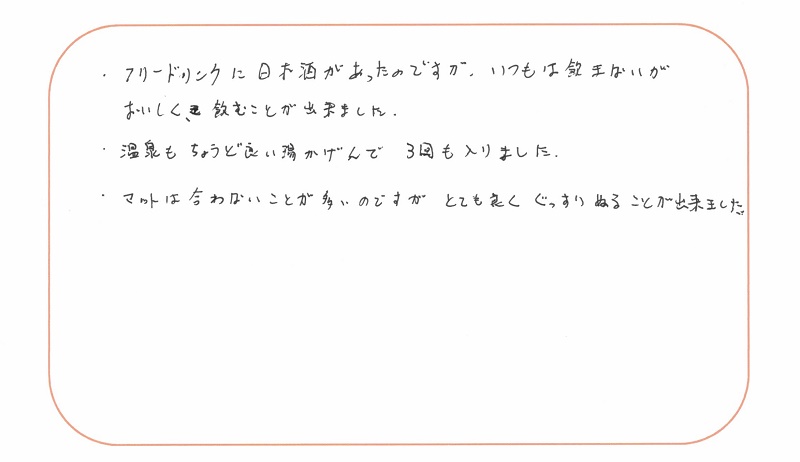 ・フリードリンクに日本酒があったのですが、いつもは飲まないが
おいしく、飲むことが出来ました。
・温泉もちょうど良い湯かげんで 3回も入りました。
・マットは合わないことが多いのですが とても良く ぐっすり ぬることが出来ました。